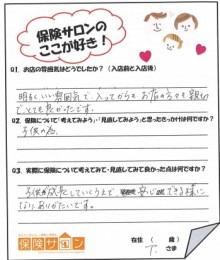 保険サロンの
ここが好き!
Q1. お店の雰囲気はどうでしたか?(入店前と入店後)
明るく、いい雰囲気で、入ってからも、お店の方々も親切
で、とても良かったです。
Q2. 保険について「考えてみよう」・「見直してみよう」と思ったきっかけは何ですか?
子供の為。
Q3. 実際に保険について考えてみて・見直してみて良かった点は何ですか?
子供が成長していくうえで、安心できる様に
なり、ありがたいです。
保険サロン
在住(歳)
T. さま